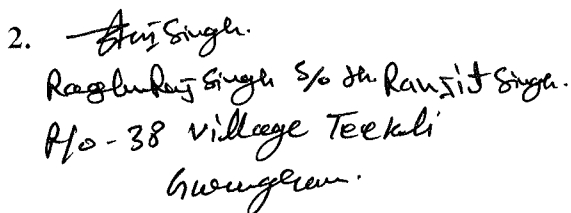 2. Singh.
Raghu Raj Singh S/o Sh. Ranjit Singh.
R/o - 38 Village Teekali
Gurugram.